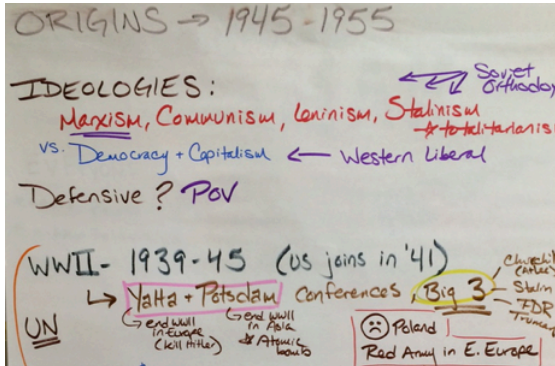 ORIGINS → 1945-1955
IDEOLOGIES:
Soviet
Orthodoxy
Marxism, Communism, Leninism, Stalinism
* totalitarianis
vs. Democracy + Capitalism ← Western Liberal
Defensive? POV
WWII - 1939-45 (US joins in '41)
↳ Yalta + Potsdam Conferences, Big 3
Churchill
(Atlee)
Stalin
FDR
Truman
UN
↳ end WWII
in Europe
(kill Hitler)
↳ end WWII
in Asia
* Atomic
bomb
☹ Poland
Red Army in E. Europe